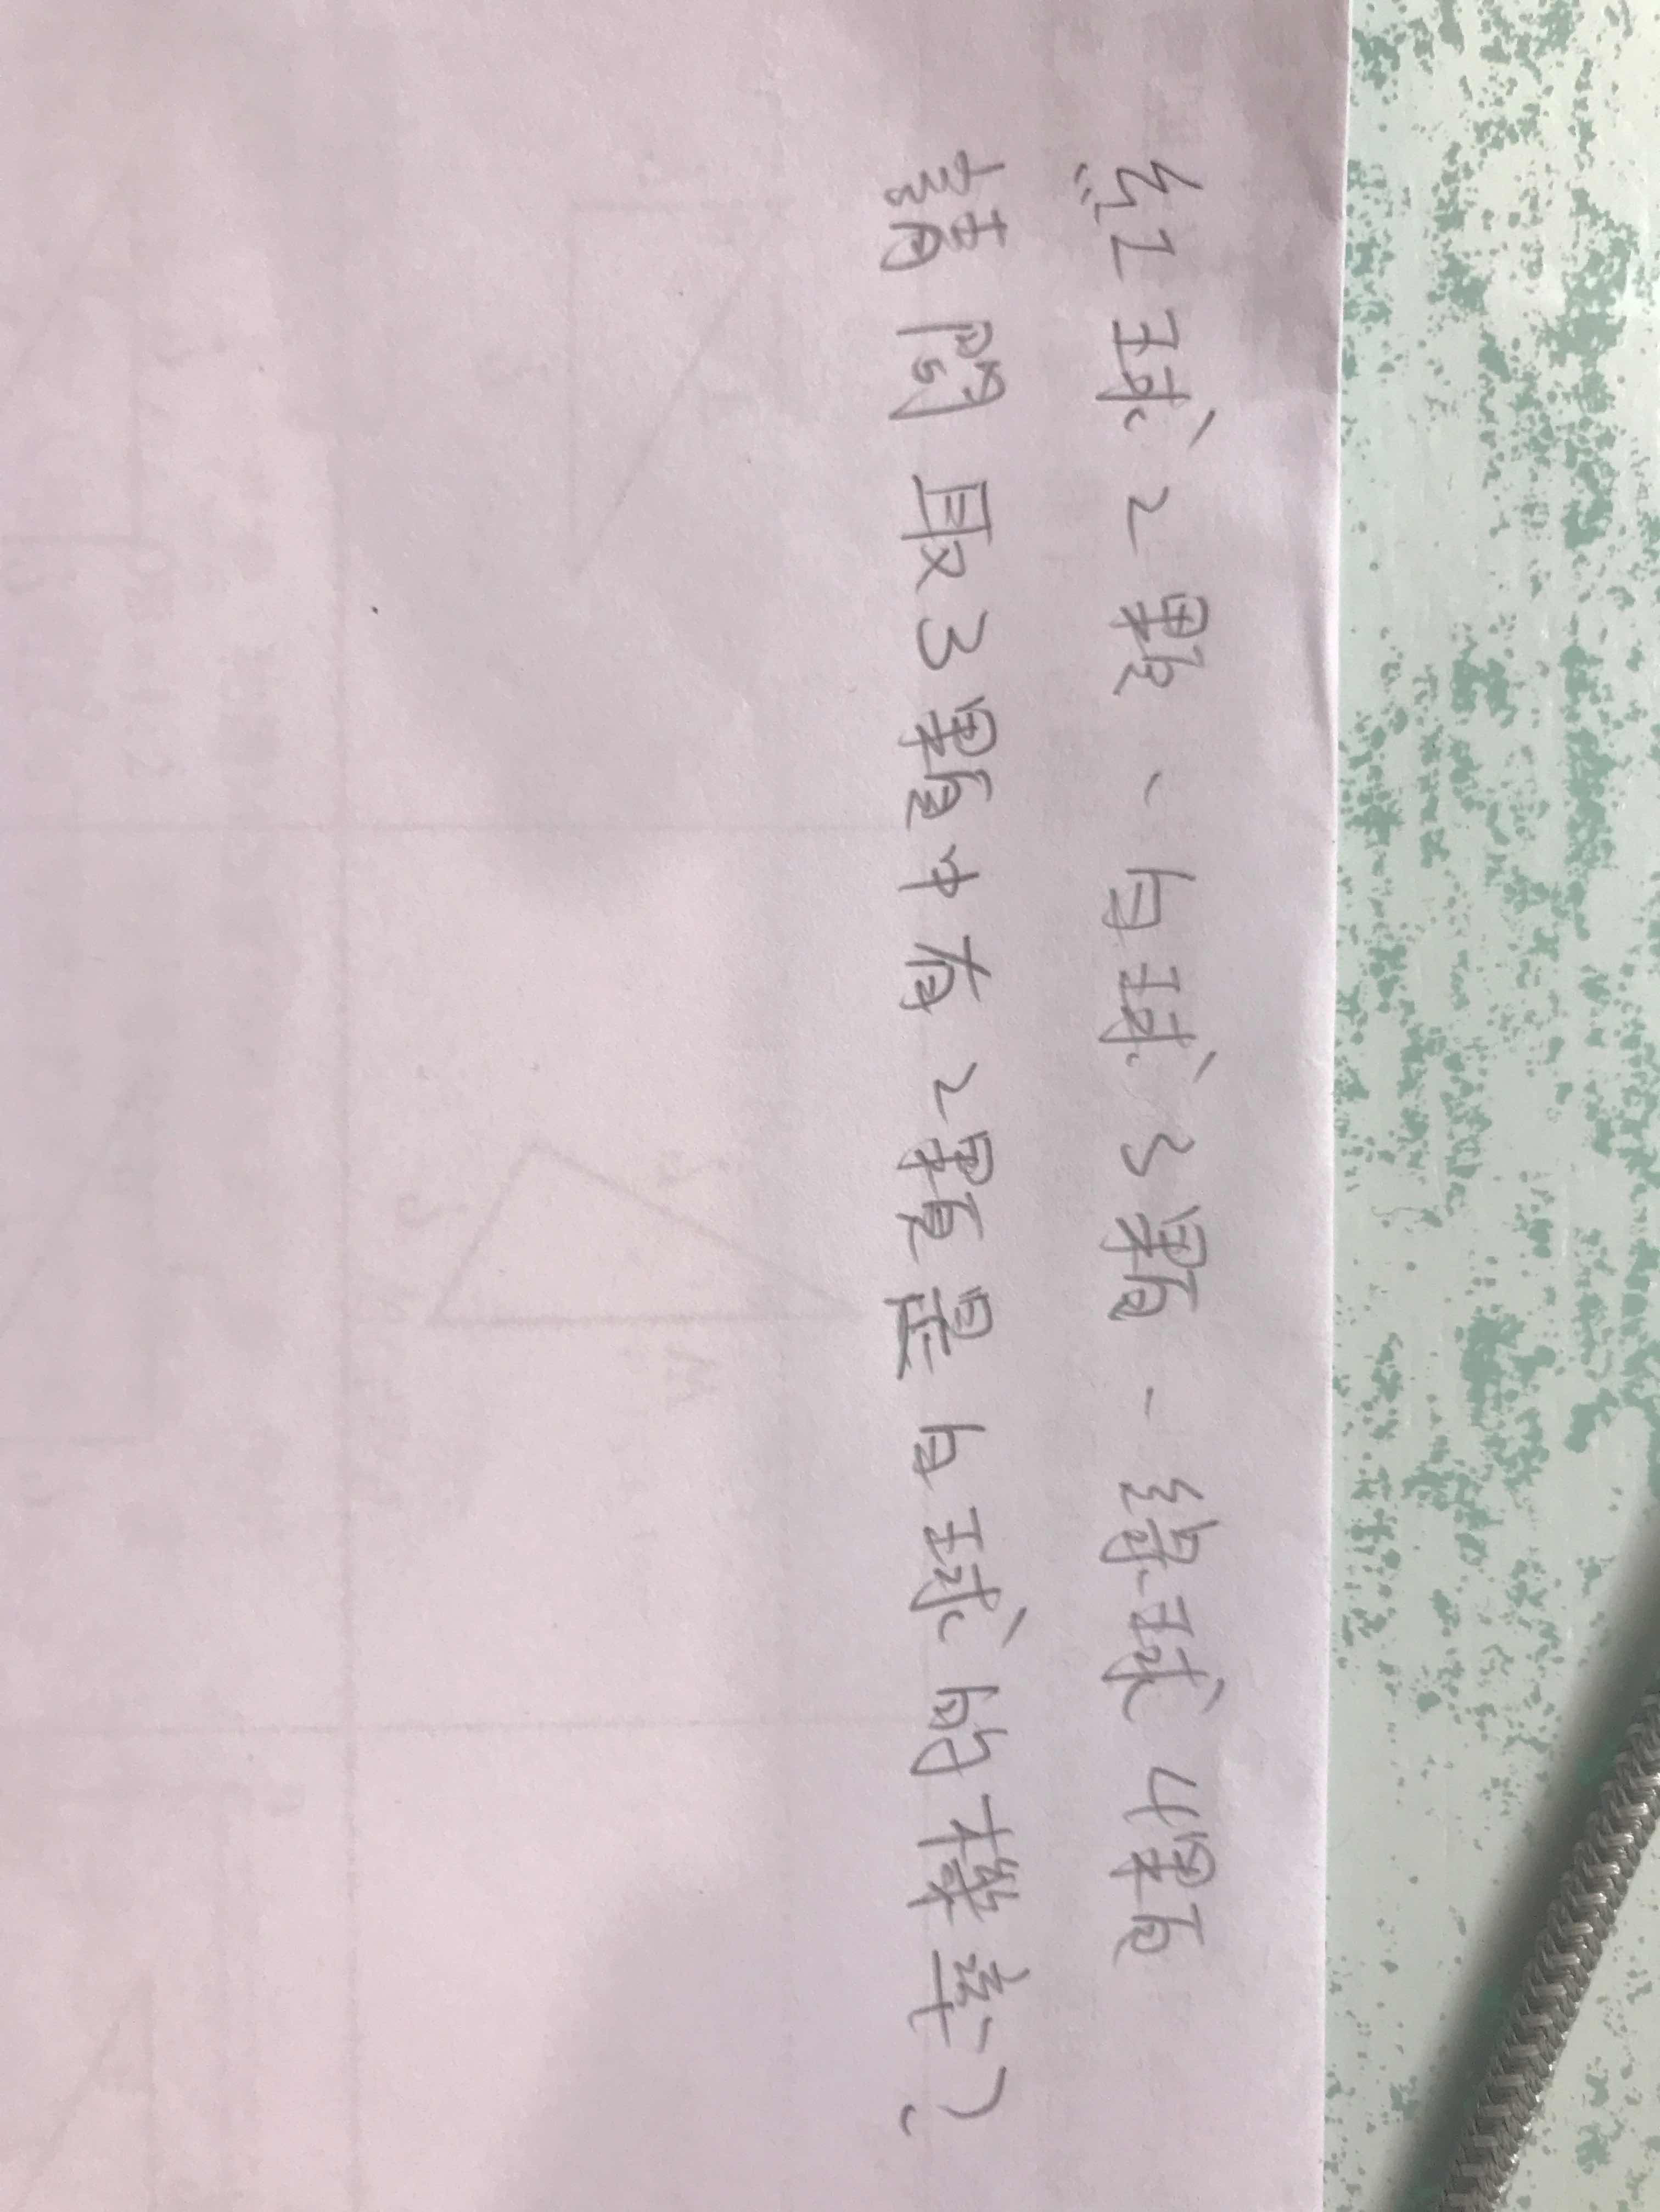 紅球2顆、白球3顆、綠球4顆
請問取3顆中有2顆是白球的機率?